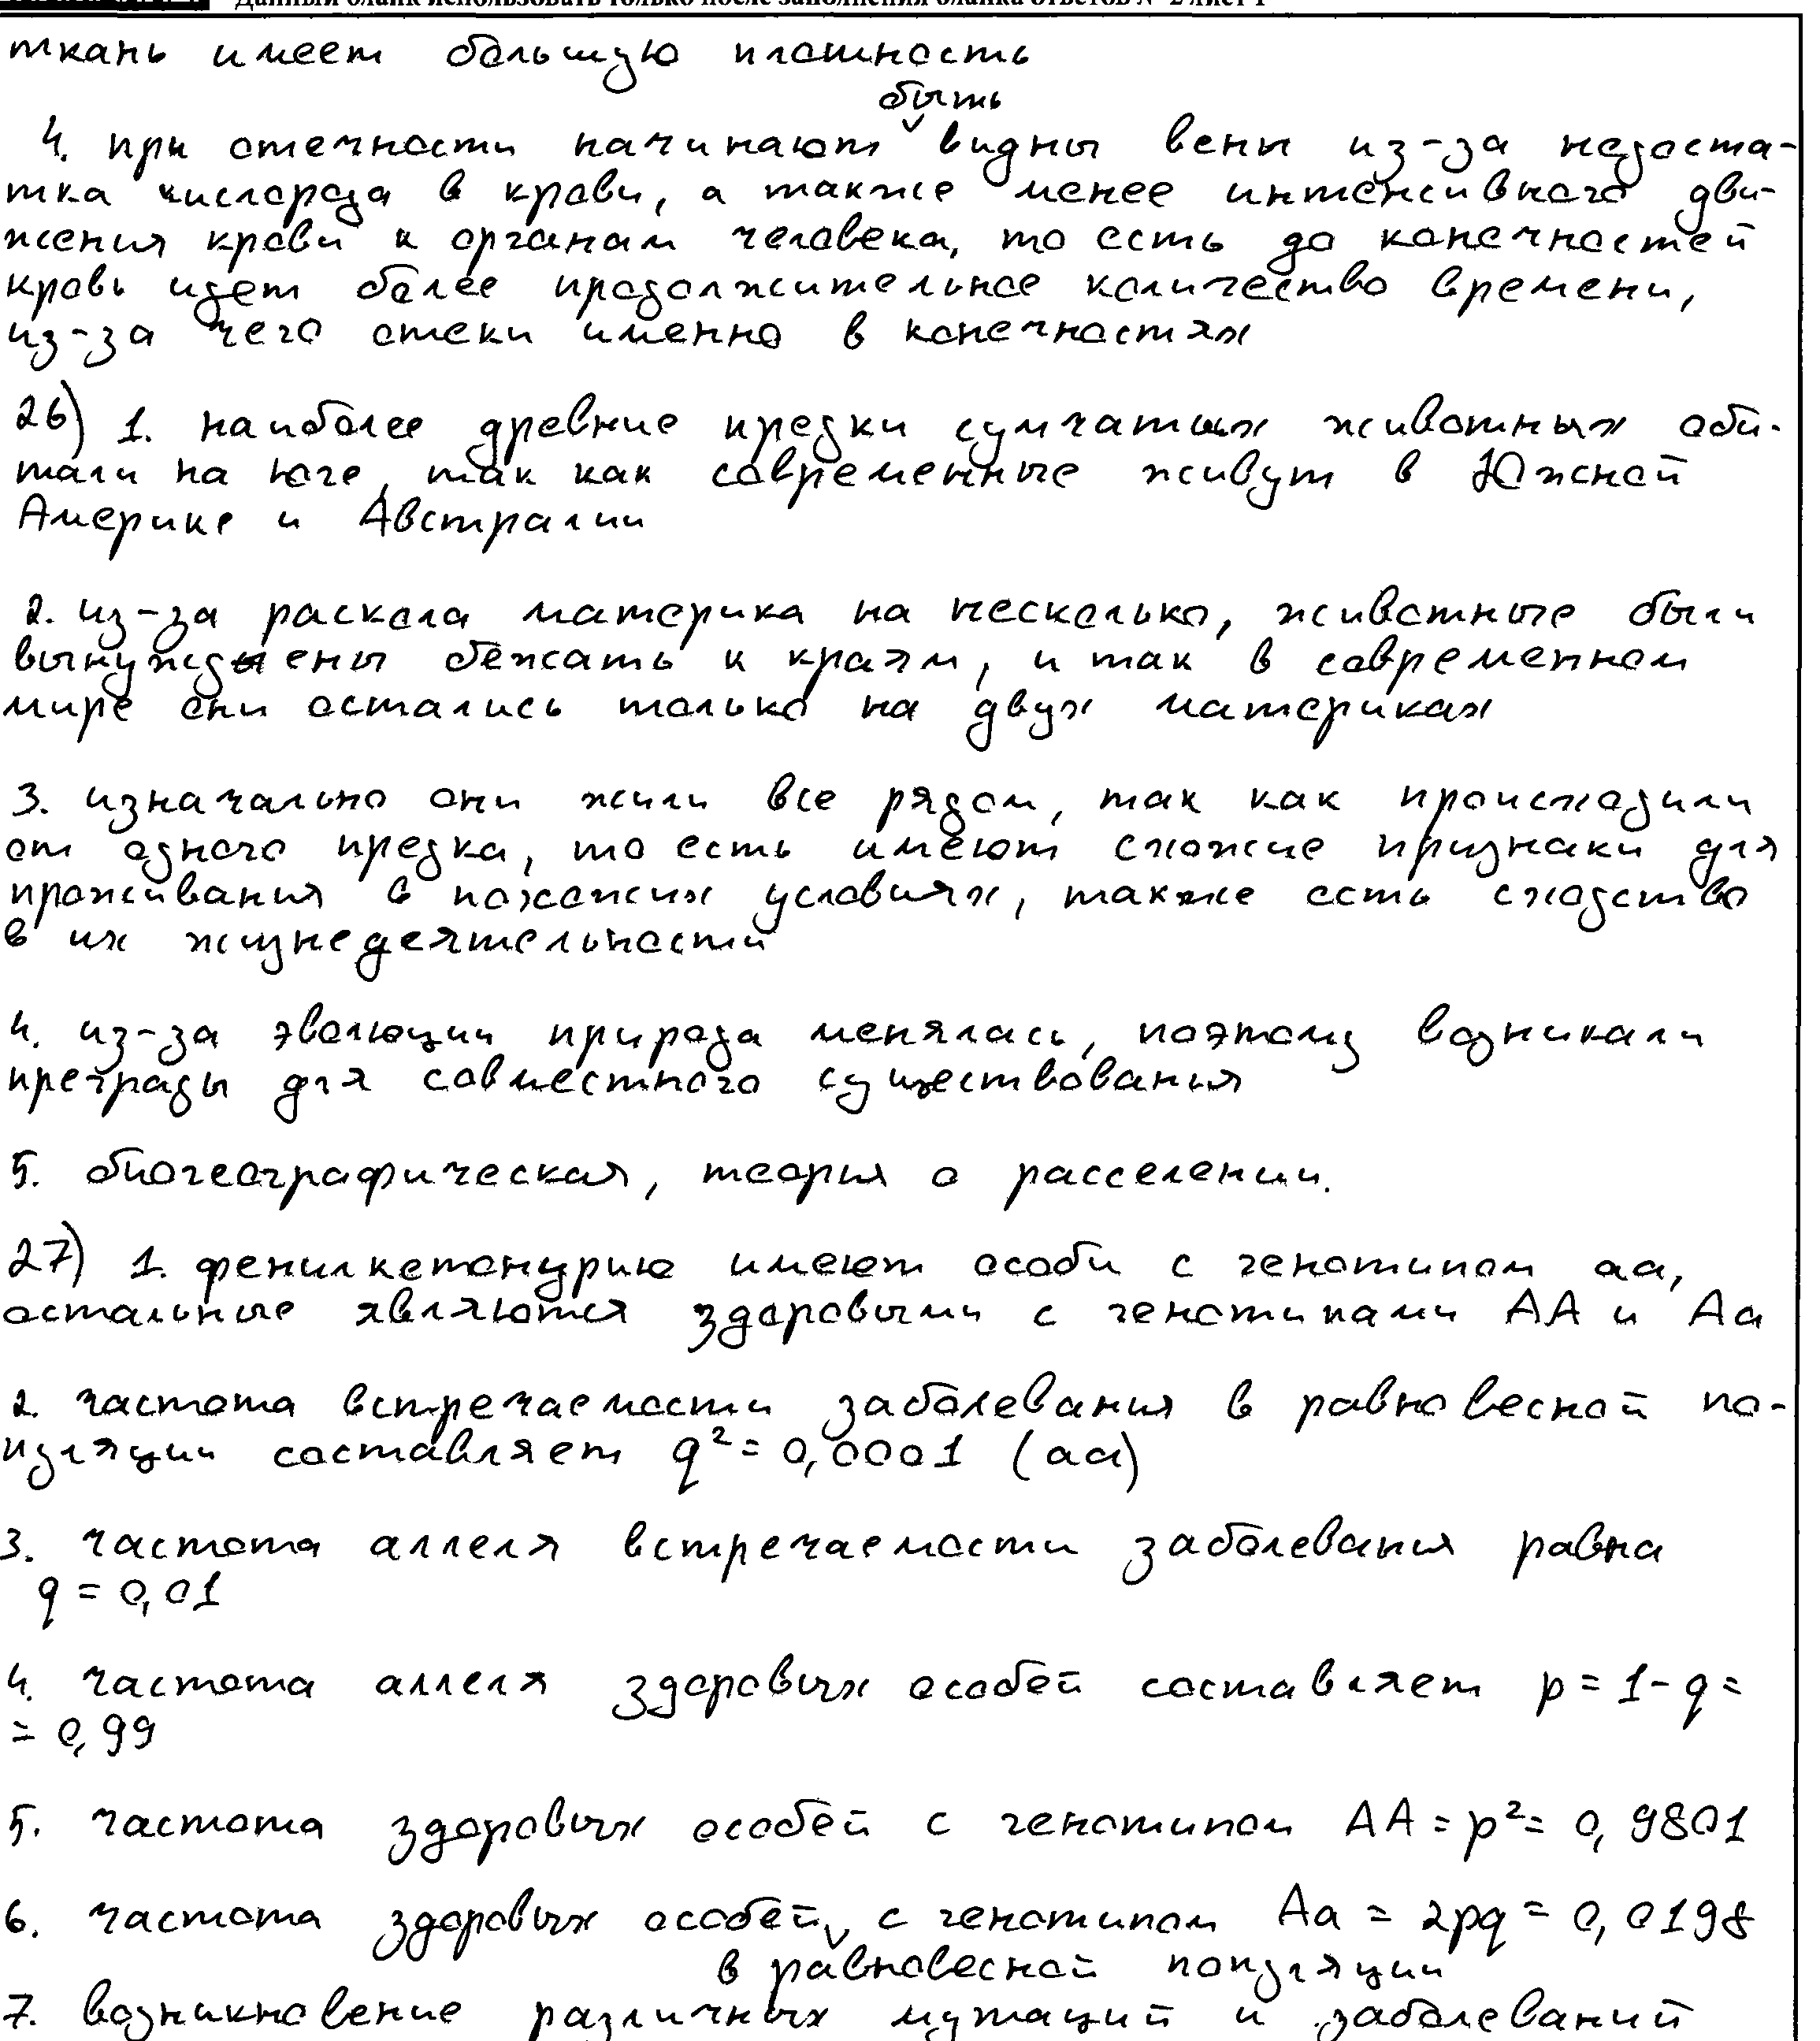 Данный бланк использовать только после заполнения бланка ответов № 2 лист 1
ткань имеет большую плотность
быть
4. при отечности начинают видны вены из-за недоста-
тка кислорода в крови, а также менее интенсивного дви-
жения крови к органам человека, то есть до конечностей
кровь идет более продолжительное количество времени,
из-за чего отеки именно в конечностях
26) 1. наиболее древние предки сумчатых животных оби-
тали на юге, так как современные живут в Южной
Америке и Австралии
2. из-за раскола материка на несколько, животные были
вынуждены бежать к краям, и так в современном
мире они остались только на двух материках
3. изначально они жили все рядом, так как происходили
от одного предка, то есть имеют схожие признаки для
проживания в похожих условиях, также есть сходство
в их жизнедеятельности
4. из-за эволюции природа менялась, поэтому возникали
преграды для совместного существования
5. биогеографическая, теория о расселении.
27) 1. фенилкетонурию имеют особи с генотипом aa,
остальные являются здоровыми с генотипами AA и Aa
2. частота встречаемости заболевания в равновесной по-
пуляции составляет q²= 0,0001 (aa)
3. частота аллеля встречаемости заболевания равна
q = 0,01
4. частота аллеля здоровых особей составляет p = 1- q =
= 0,99
5. частота здоровых особей с генотипом AA = p²= 0,9801
6. частота здоровых особей с генотипом Aa = 2pq = 0,0198
в равновесной популяции
7. возникновение различных мутаций и заболеваний